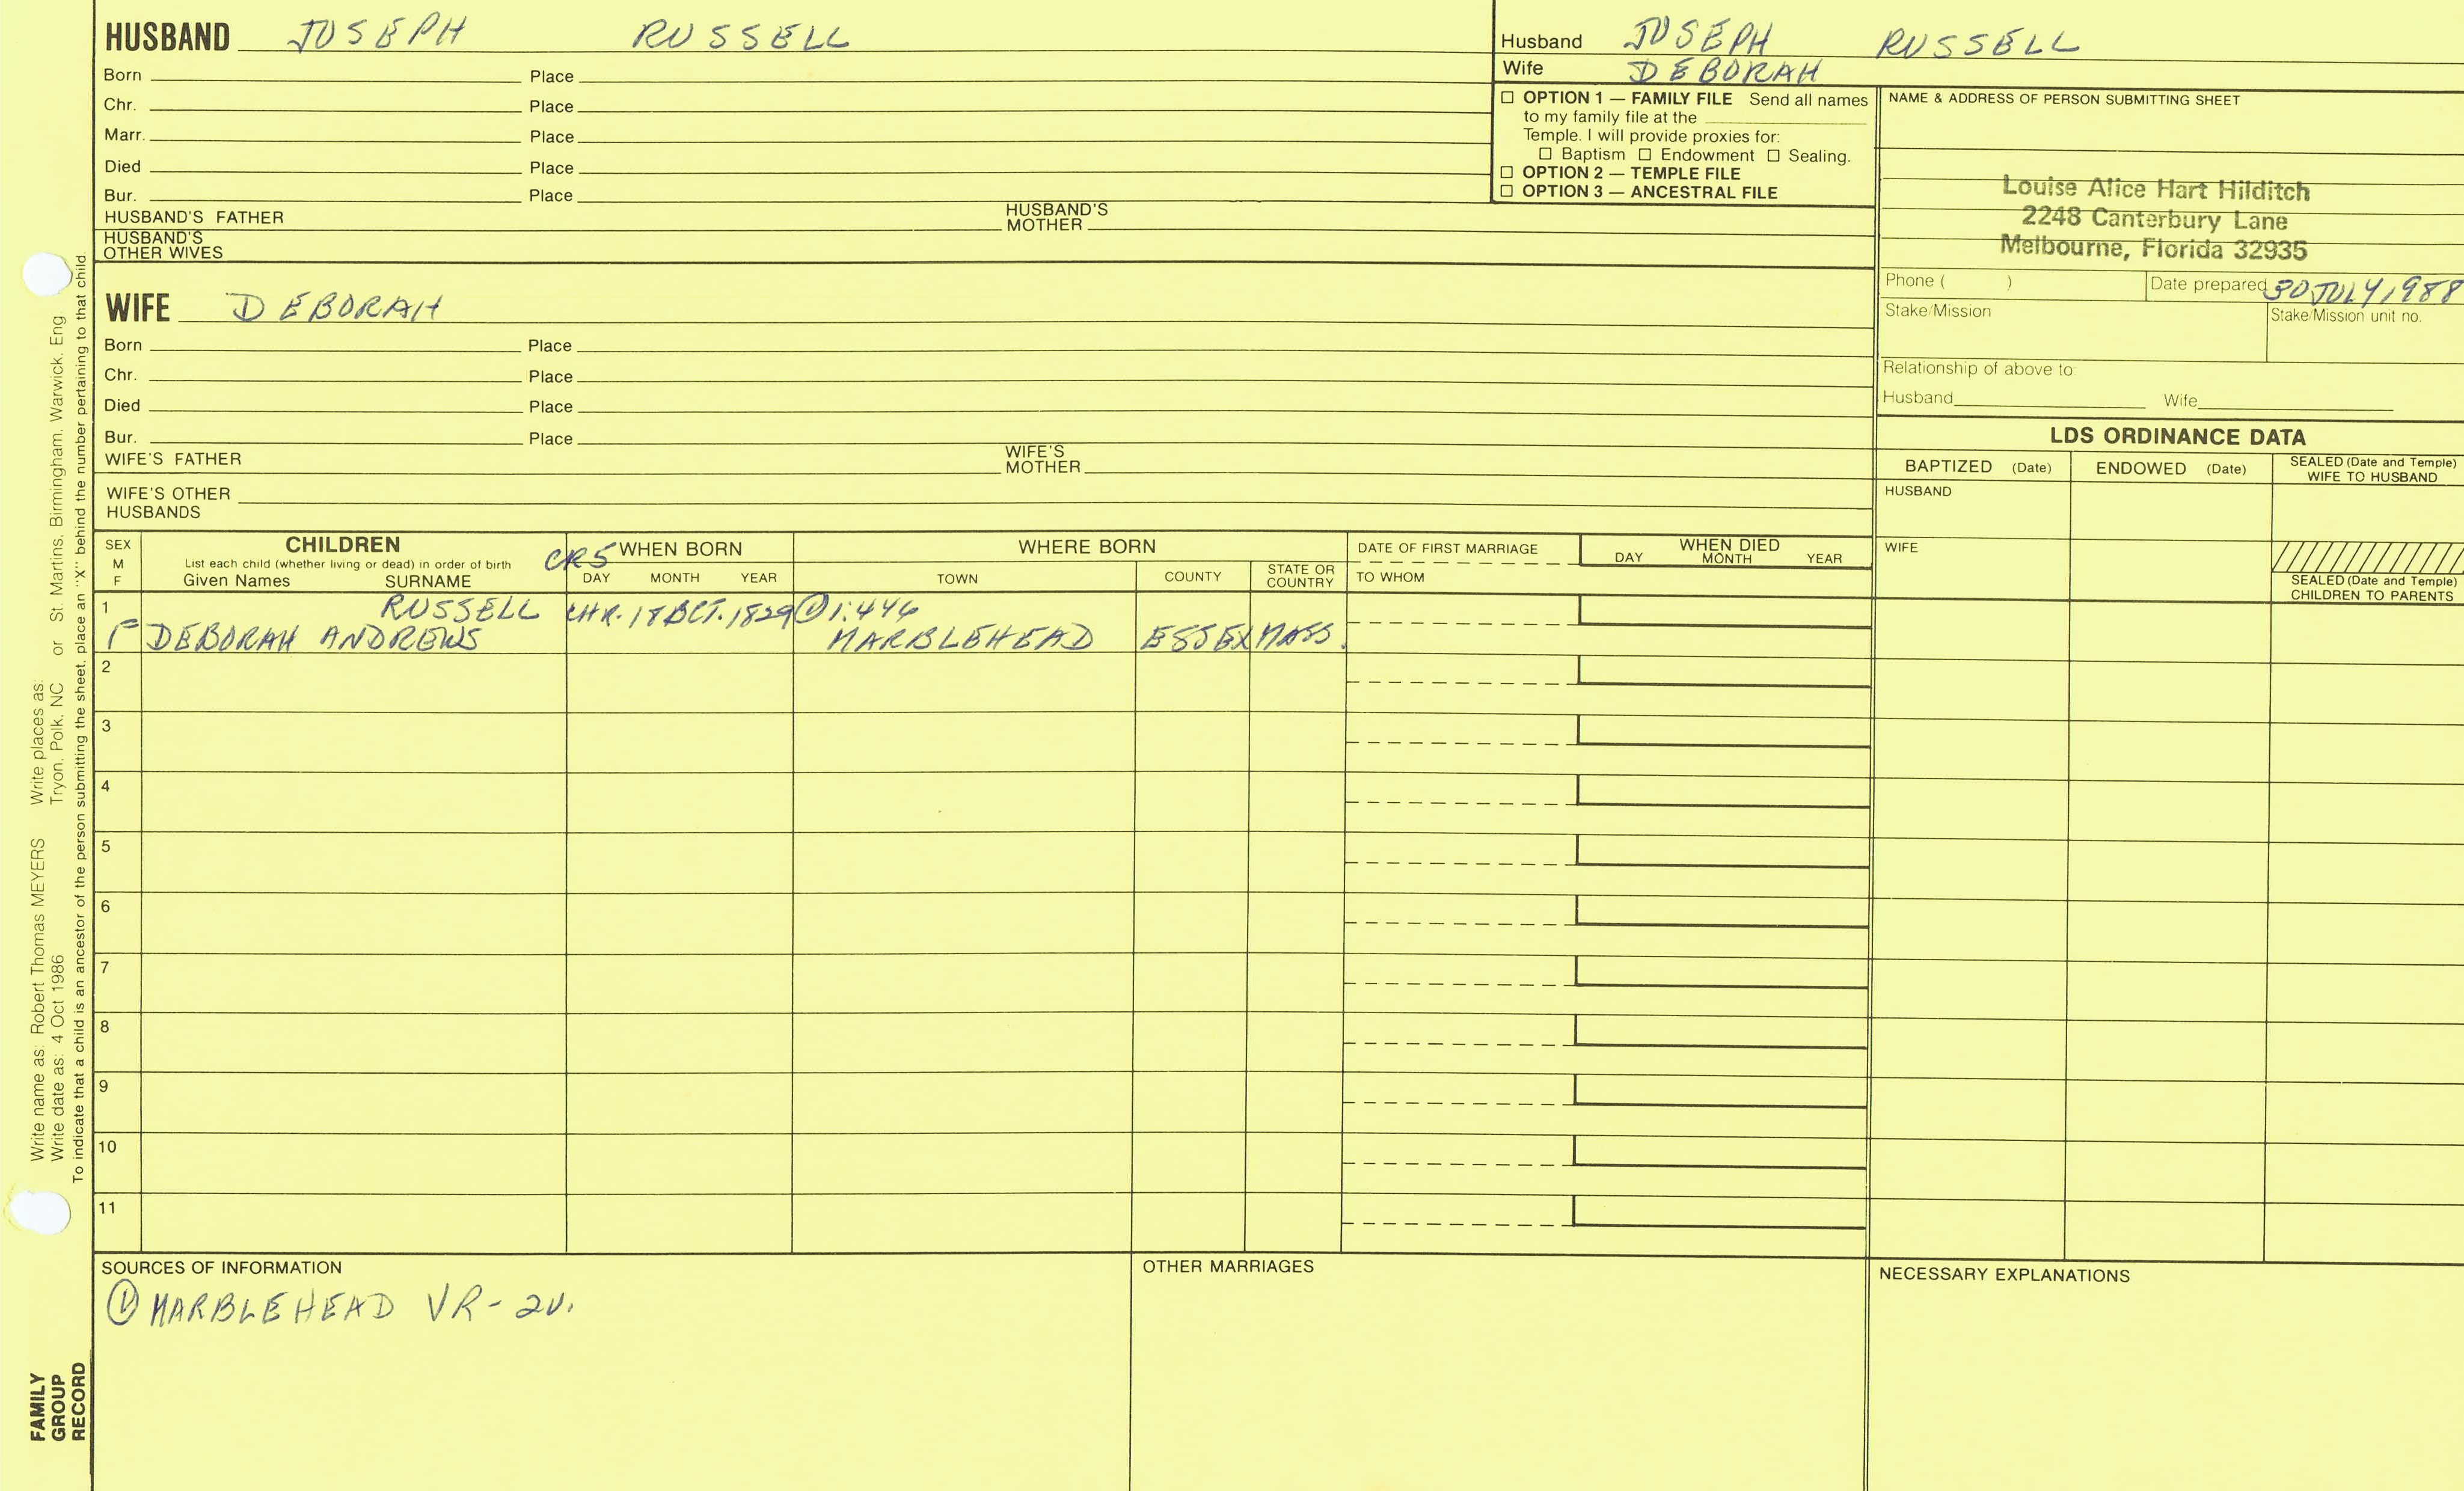 HUSBAND JOSEPH RUSSELL
Born Place
Chr. Place
Marr. Place
Died Place
Bur. Place
HUSBAND'S FATHER HUSBAND'S MOTHER
HUSBAND'S OTHER WIVES
WIFE DEBORAH
Born Place
Chr. Place
Died Place
Bur. Place
WIFE'S FATHER WIFE'S MOTHER
WIFE'S OTHER HUSBANDS
Husband JOSEPH RUSSELL
Wife DEBORAH
☐ OPTION 1 — FAMILY FILE Send all names
to my family file at the
Temple. I will provide proxies for:
☐ Baptism ☐ Endowment ☐ Sealing.
☐ OPTION 2 — TEMPLE FILE
☐ OPTION 3 — ANCESTRAL FILE
NAME & ADDRESS OF PERSON SUBMITTING SHEET
Louise Alice Hart Hilditch
2248 Canterbury Lane
Melbourne, Florida 32935
Phone ( ) Date prepared 30 JULY 1988
Stake/Mission Stake/Mission unit no.
Relationship of above to:
Husband Wife
LDS ORDINANCE DATA
BAPTIZED (Date) ENDOWED (Date) SEALED (Date and Temple) WIFE TO HUSBAND
HUSBAND
WIFE
SEALED (Date and Temple)
CHILDREN TO PARENTS
SEX M F
CHILDREN
List each child (whether living or dead) in order of birth
Given Names SURNAME
CR5 WHEN BORN
DAY MONTH YEAR
WHERE BORN
TOWN COUNTY STATE OR COUNTRY
DATE OF FIRST MARRIAGE
TO WHOM
WHEN DIED
DAY MONTH YEAR
1 RUSSELL CHR. 18 OCT. 1829 ① 1:446
F DEBORAH ANDREWS MARBLEHEAD ESSEX MASS.
2
3
4
5
6
7
8
9
10
11
SOURCES OF INFORMATION
① MARBLEHEAD VR - 2V.
OTHER MARRIAGES
NECESSARY EXPLANATIONS
Write name as: Robert Thomas MEYERS Write places as:
Write date as: 4 Oct 1986 Tryon, Polk, NC or St. Martins, Birmingham, Warwick, Eng
To indicate that a child is an ancestor of the person submitting the sheet, place an "X" behind the number pertaining to that child
FAMILY
GROUP
RECORD